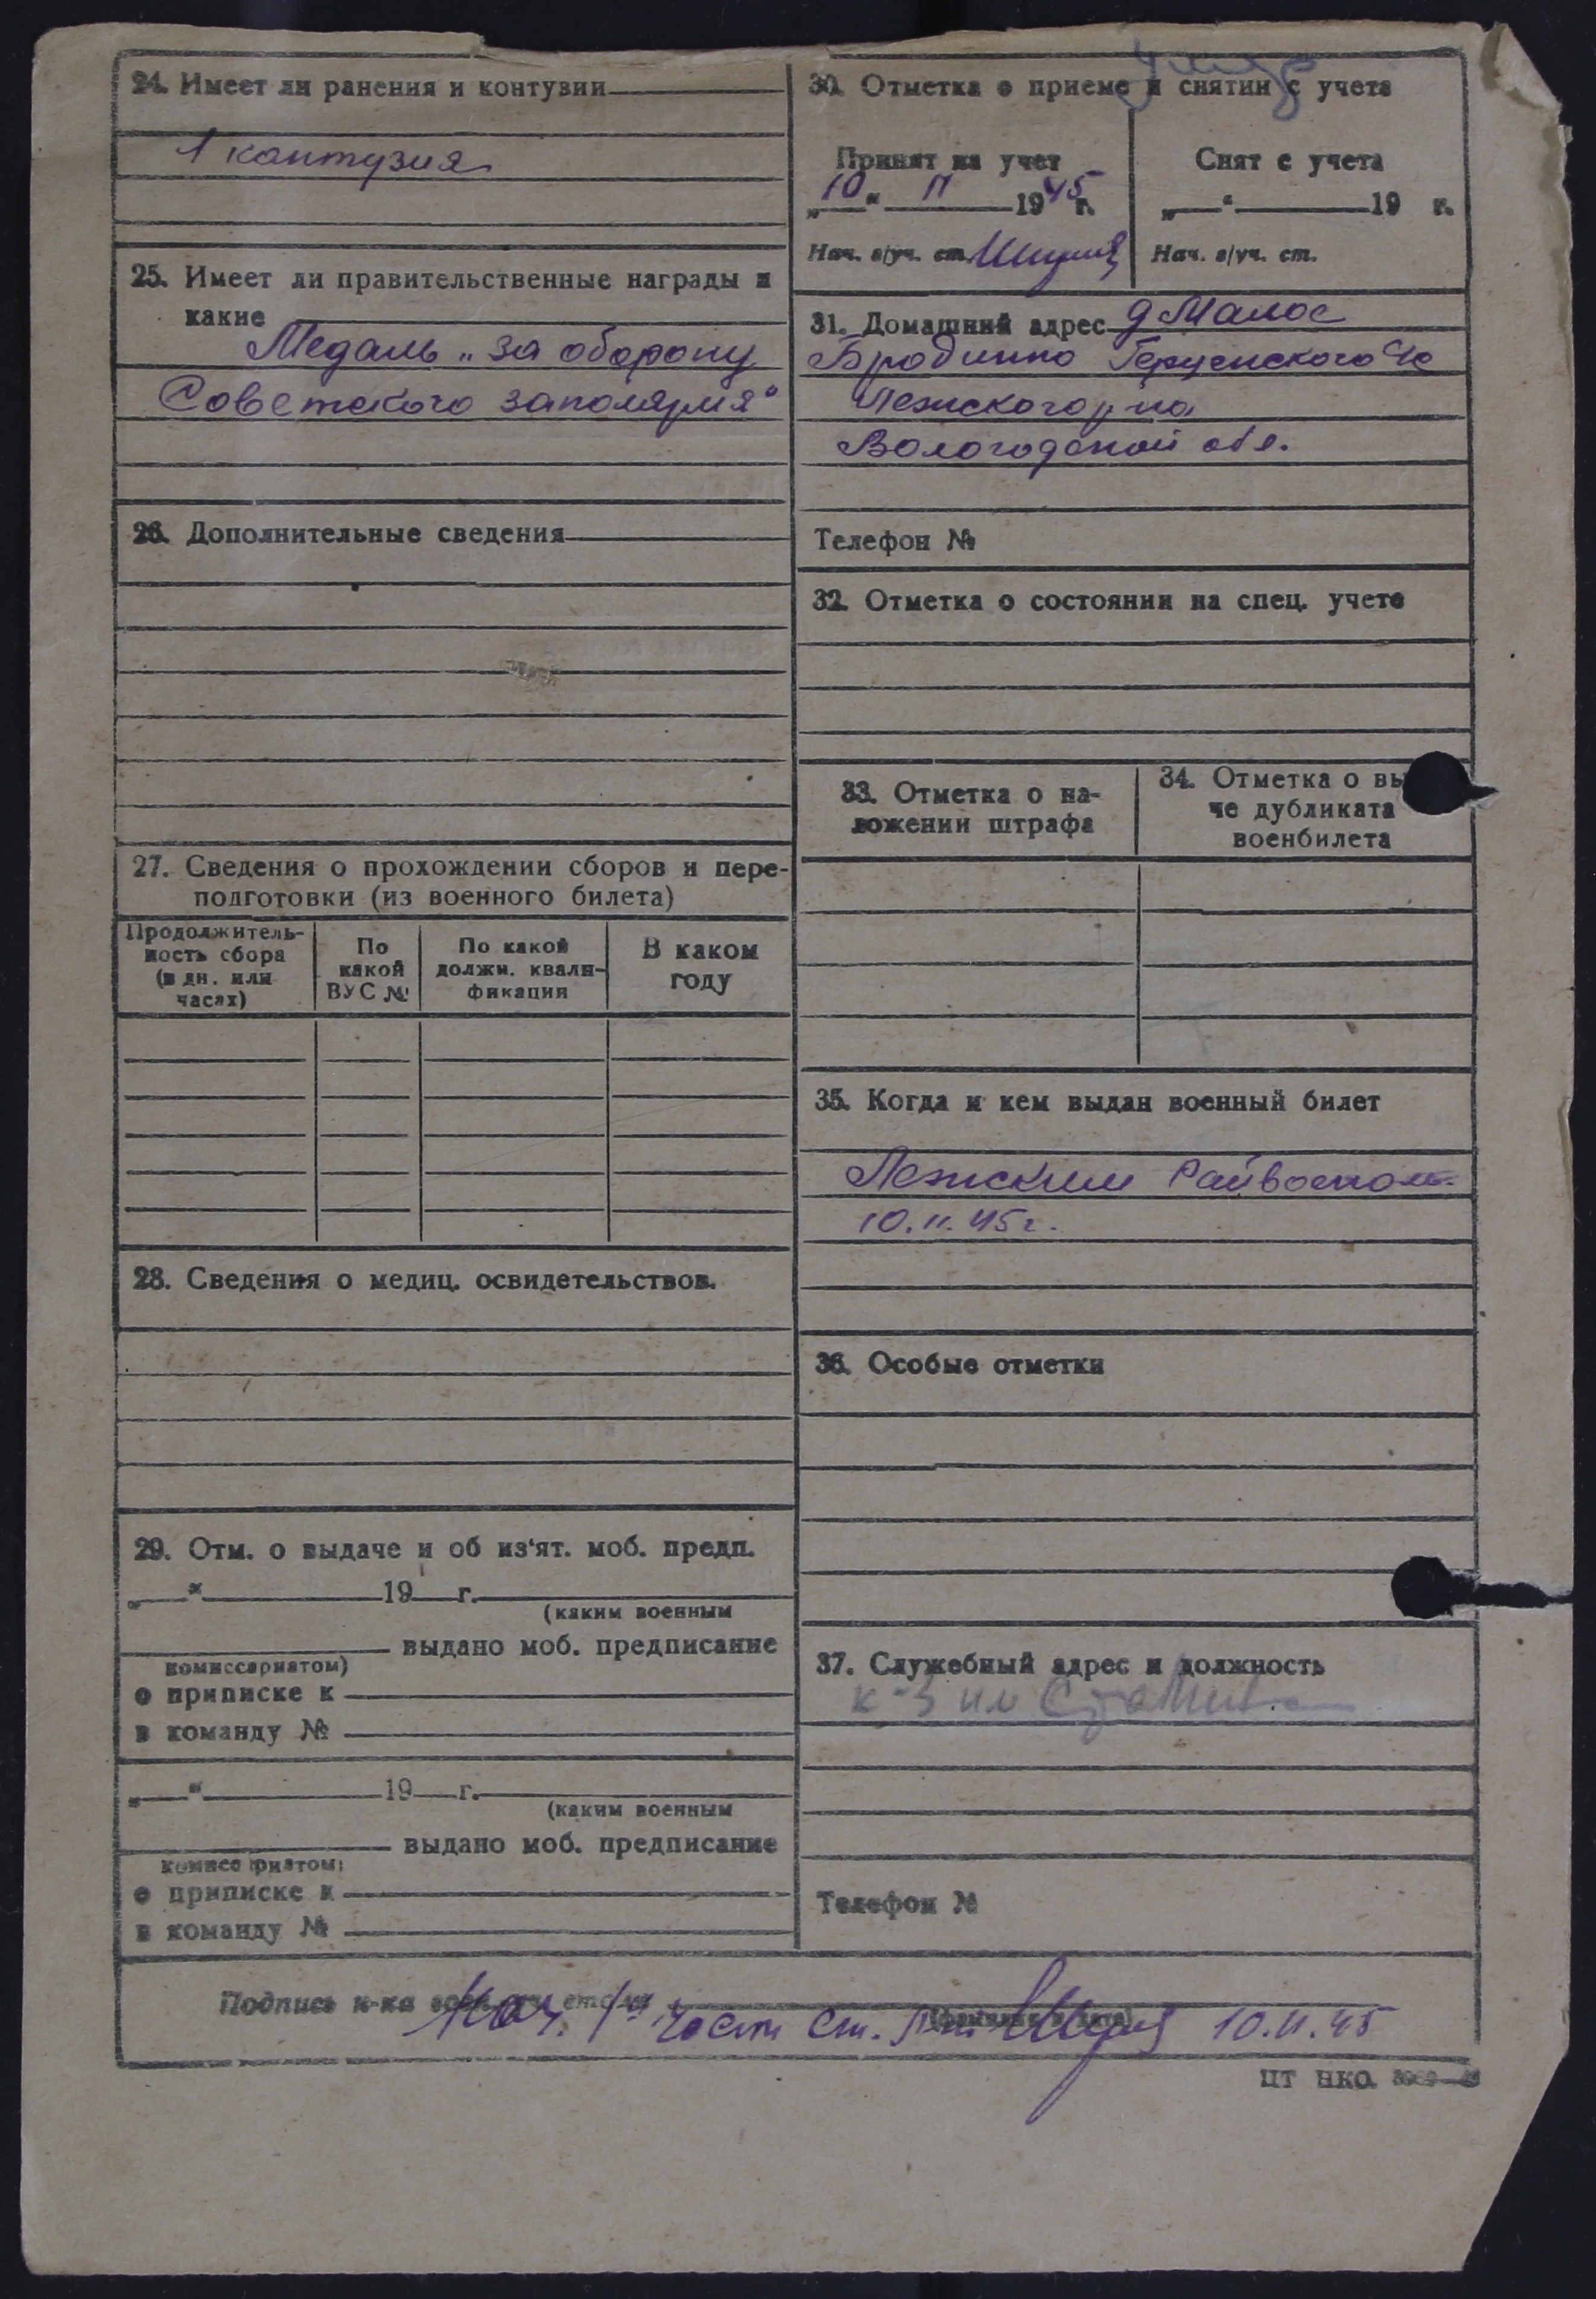 24. Имеет ли ранения и контузии
1 кантузия
25. Имеет ли правительственные награды и
какие
Медаль „За оборону
Советского заполярия"
26. Дополнительные сведения
27. Сведения о прохождении сборов и пере-
подготовки (из военного билета)
Продолжитель-
ность сбора
(в дн. или
часах)
По
какой
ВУС №
По какой
должн. квали-
фикация
В каком
году
28. Сведения о медиц. освидетельствов.
29. Отм. о выдаче и об из‘ят. моб. предп.
„ “ 19 г.
(каким военным
выдано моб. предписание
комиссариатом)
о приписке к
в команду №
„ “ 19 г.
(каким военным
выдано моб. предписание
комиссариатом)
о приписке к
в команду №
30. Отметка о приеме и снятии с учета
Принят на учет
„10“ 11 1945 г.
Нач. в/уч. ст.
Снят с учета
„ “ 19 г.
Нач. в/уч. ст.
31. Домашний адрес д Малое
Бродино Герценского с/с
Лежского р-на
Вологодской обл.
Телефон №
32. Отметка о состоянии на спец. учете
33. Отметка о на-
ложении штрафа
34. Отметка о вы
че дубликата
военбилета
35. Когда и кем выдан военный билет
Лежским Райвоенком.
10.11.45г.
36. Особые отметки
37. Служебный адрес и должность
к-з им Сталина
Телефон №
Подпись н-ка
(фамилия и дата)
Нач. 1й части Ст. 10.11.45
ЦТ НКО